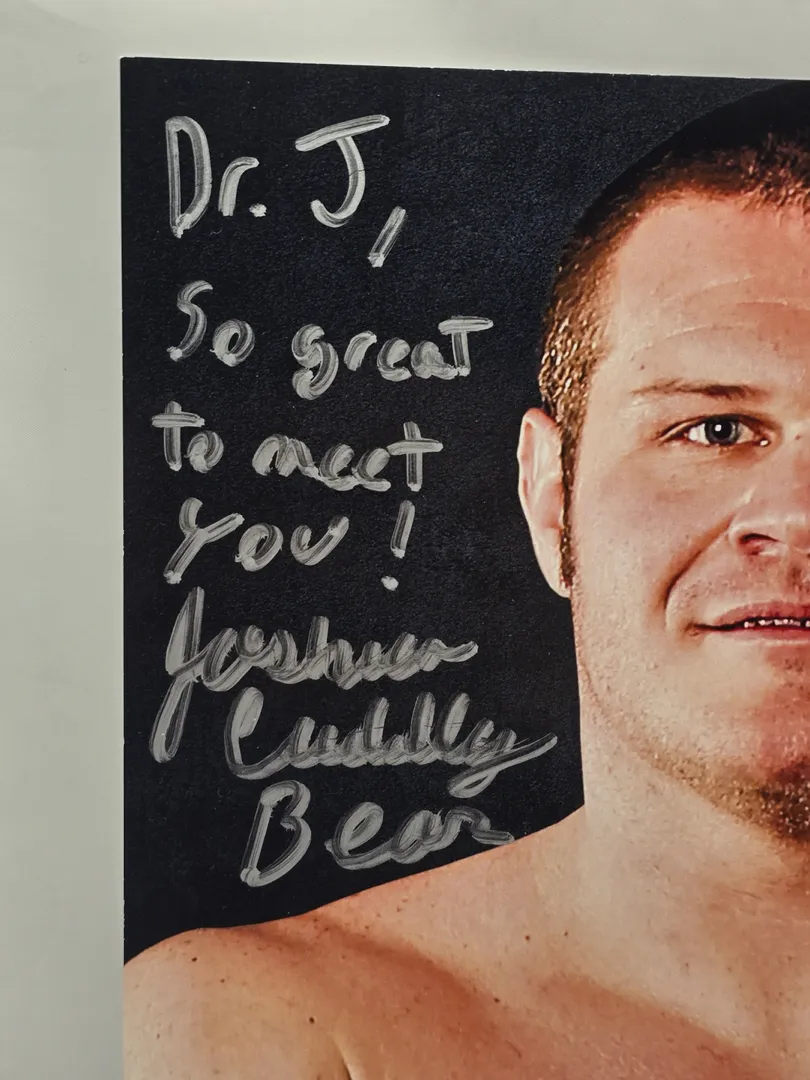 Dr. J,
So great
to meet
you!
Joshua
Cuddly
Bear